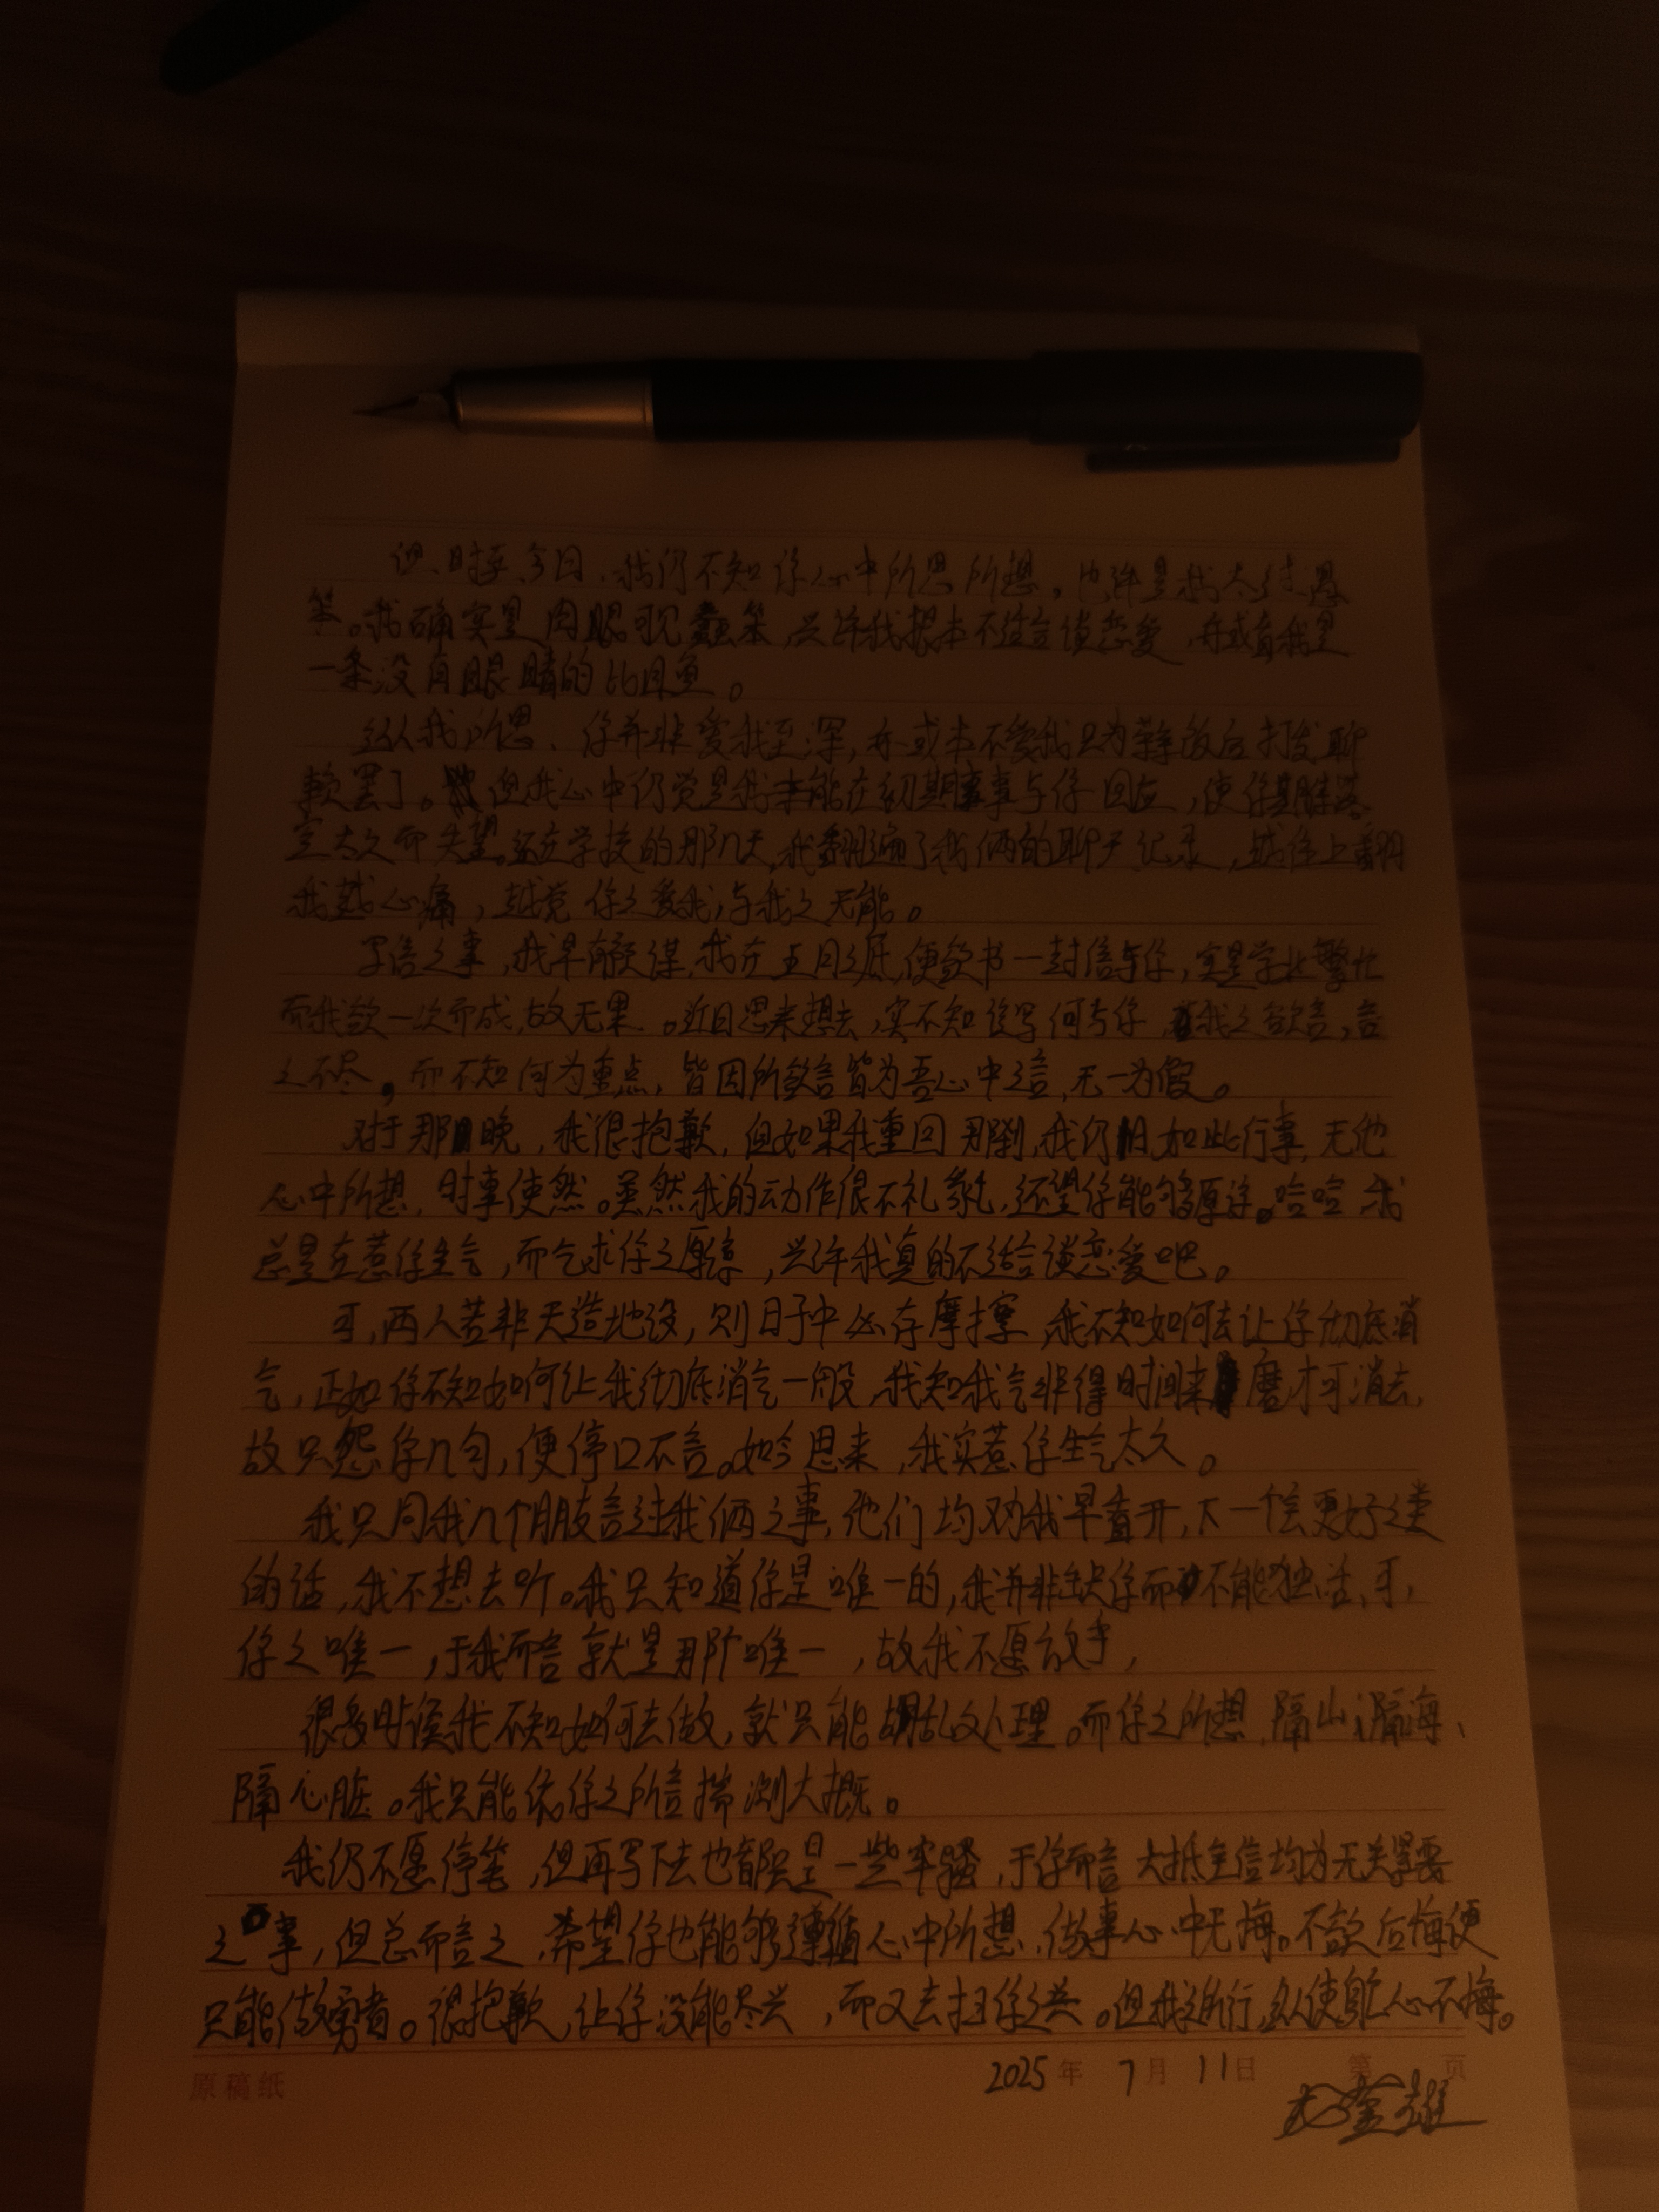 但、时至今日、我仍不知你心中所思所想，也许是我太过愚
笨。我确实是肉眼可见蠢笨，兴许我根本不适合谈恋爱，亦或者我是
一条没有眼睛的比目鱼。
纵我所思、你并非爱我至深，亦或本不爱我只为
赖罢了。但我心中仍觉是我未能在初期事事与你回应，使你期待落
空太久而失望。还在学校的那几天，我翻遍了我俩的聊天记录，越往上翻
我越心痛，越觉你之爱我，与我之无能。
写信之事，我早有预谋，我在五月之底，便欲书一封信与你，实是学业繁忙
而我欲一次而成，故无果。近日思来想去，实不知该写何与你，我之欲言，言
之不尽，而不知何为重点，皆因所欲言皆为吾心中之言，无一为假。
对于那晚，我很抱歉，但如果我重回那刻，我仍旧如此行事，无他
心中所想，时事使然。虽然我的动作很不礼貌，还望你能够原谅。哈哈，我
总是在惹你生气，而乞求你之原谅，兴许我真的不适合谈恋爱吧。
可，两人若非天造地设，则日子中必存摩擦，我不知如何去让你彻底消
气，正如你不知如何让我彻底消气一般，我知我气非得时间来磨，才可消去，
故只怨你几句，便停口不言。如今思来，我实惹你生气太久。
我只同我几个朋友言过我俩之事，他们均劝我早看开，下一个会更好之类
的话，我不想去听。我只知道你是唯一的，我并非缺你而不能独活，可，
你之唯一，于我而言就是那个唯一，故我不愿放手，
很多时候我不知如何去做，就只能胡乱处理。而你之所想，隔山、隔海、
隔心脏。我只能依你之所言揣测大概。
我仍不愿停笔，但再写下去也都只是一些牢骚，于你而言大抵全信均为无关紧要
之事，但总而言之，希望你也能够遵循心中所想，做事心中无悔。不欲后悔便
只能做勇者。很抱歉，让你没能尽兴，而又去扫你之兴。但我之所行，纵使 心不悔。
原稿纸 2025年 7月 11日 第 页